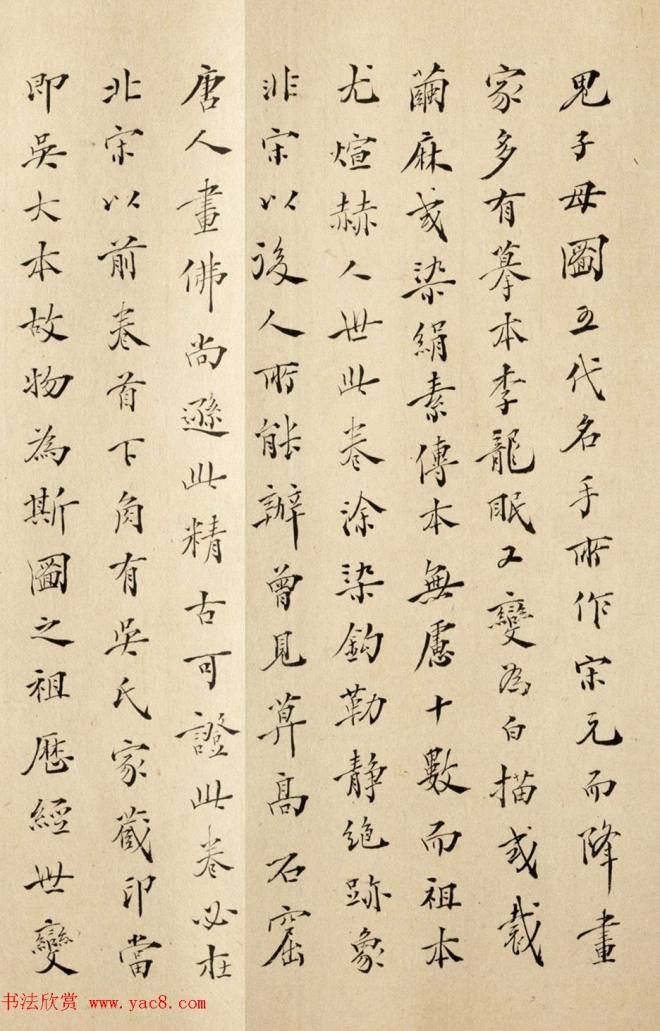 鬼子母圖五代名手所作宋元而降畫
家多有摹本李龍眠又變為白描或裁
繭麻或染絹素傳本無慮十數而祖本
尤煊赫人世此卷涂染鈎勒靜絕跡象
非宋以後人所能辦曾見莫高石窟
唐人畫佛尚遜此精古可證此卷必在
北宋以前卷首下角有吳氏家藏印當
即吳大本故物為斯圖之祖歷經世變
书法欣赏 www.yac8.com